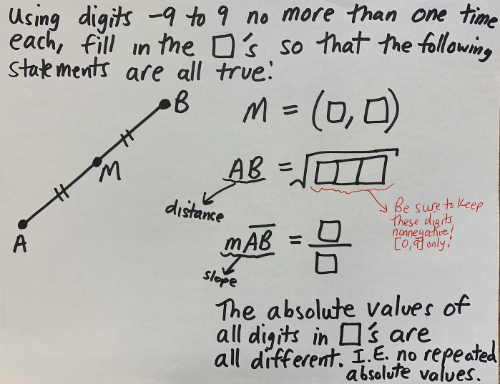 Using digits -9 to 9 no more than one time
each, fill in the □'s so that the following
statements are all true:
B
M = (□, □)
M
AB = √□□□
distance
Be sure to keep
these digits
nonnegative!
[0,9] only!
A
mAB = □/□
slope
The absolute values of
all digits in □'s are
all different. I.E. no repeated
absolute values.